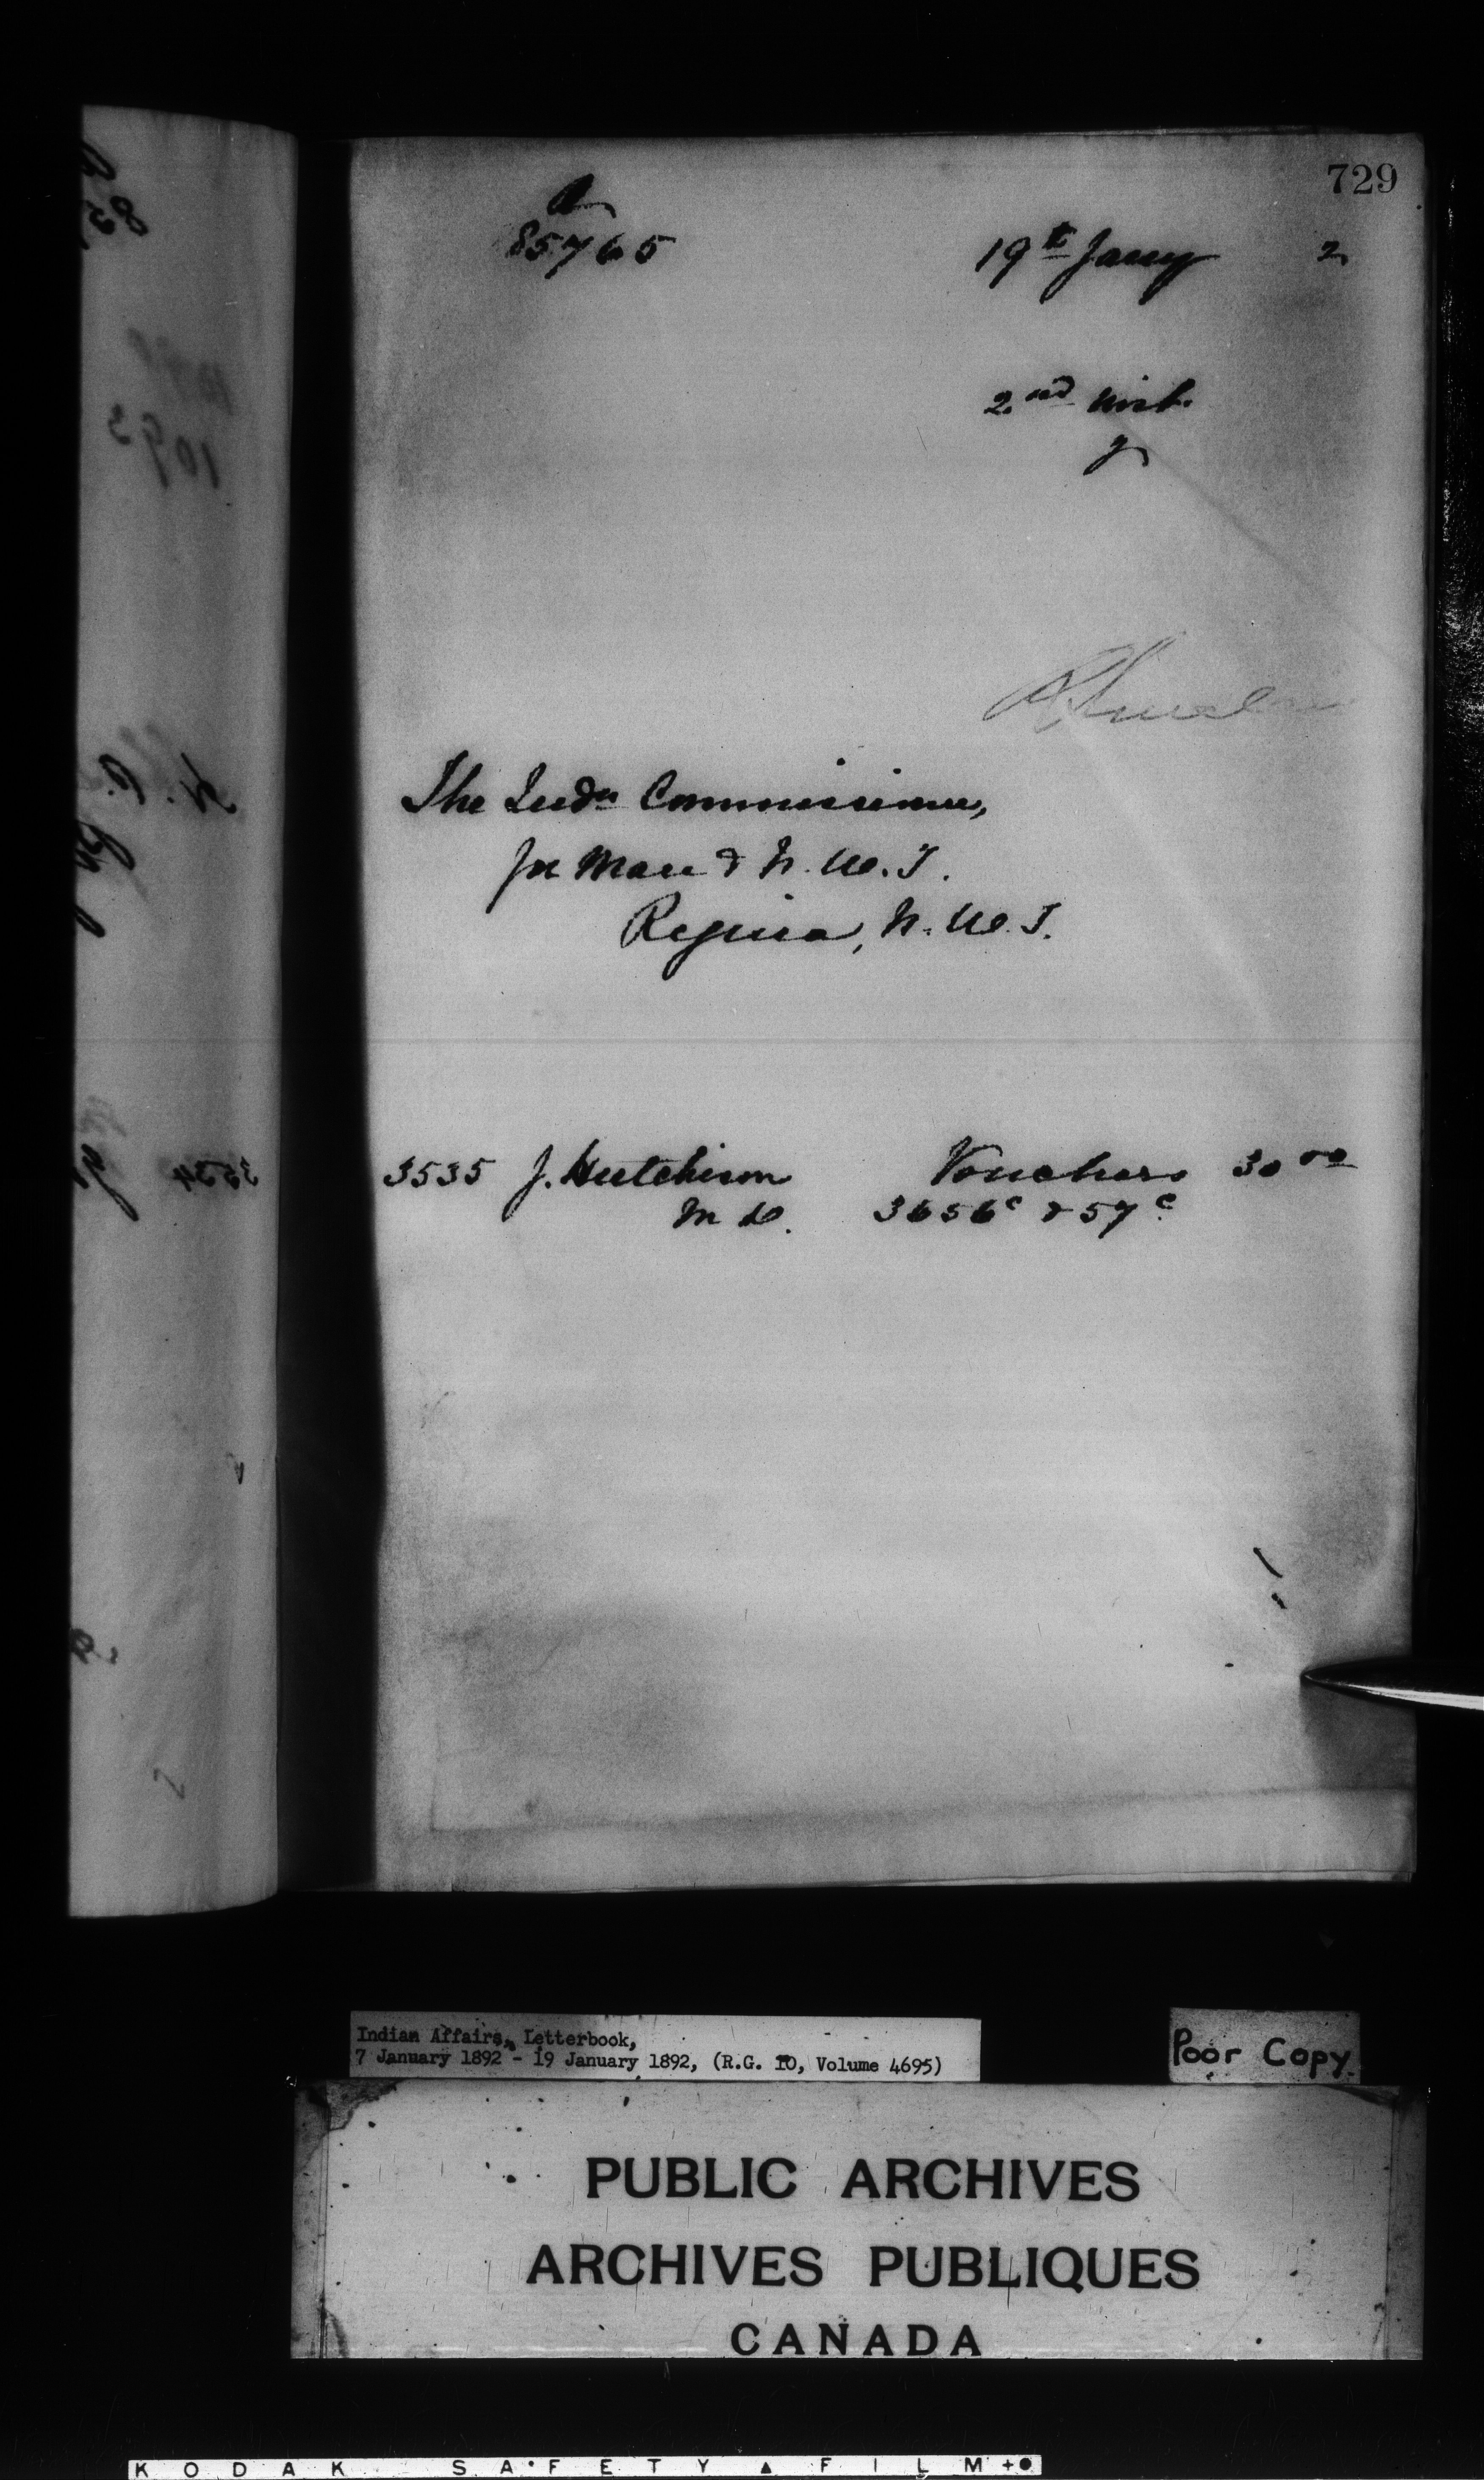 729
85765
19th Jany 2
2nd inst.
The Indn Commissioner,
for Man & N.W.T.
Regina, N.W.T.
3535 J. Hutchison Vouchers 30 00
M D. 3656c & 57c
3534
1093
Indian Affairs, Letterbook,
7 January 1892 - 19 January 1892, (R.G. 10, Volume 4695)
Poor Copy.
PUBLIC ARCHIVES
ARCHIVES PUBLIQUES
CANADA
KODAK SAFETY FILM